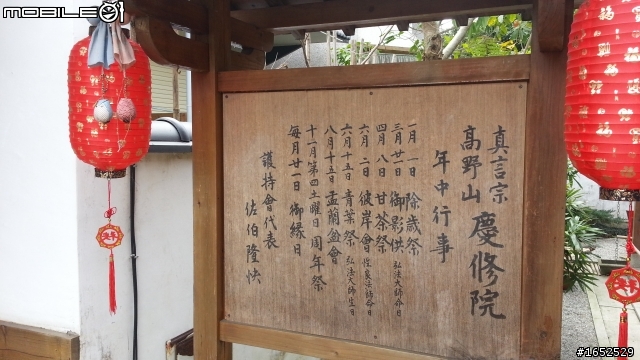 mobile01
真言宗
高野山 慶修院
年中行事
一月一日 除歳祭
三月廿一日 御影供 弘法大師命日
四月八日 甘茶祭
六月二日 彼岸會
六月十五日 青葉祭 弘法大師生日
八月十五日 盂蘭盆會
十一月第四土曜日 周年祭
毎月廿一日 御縁日
護持會代表
佐伯隆快
#1652529